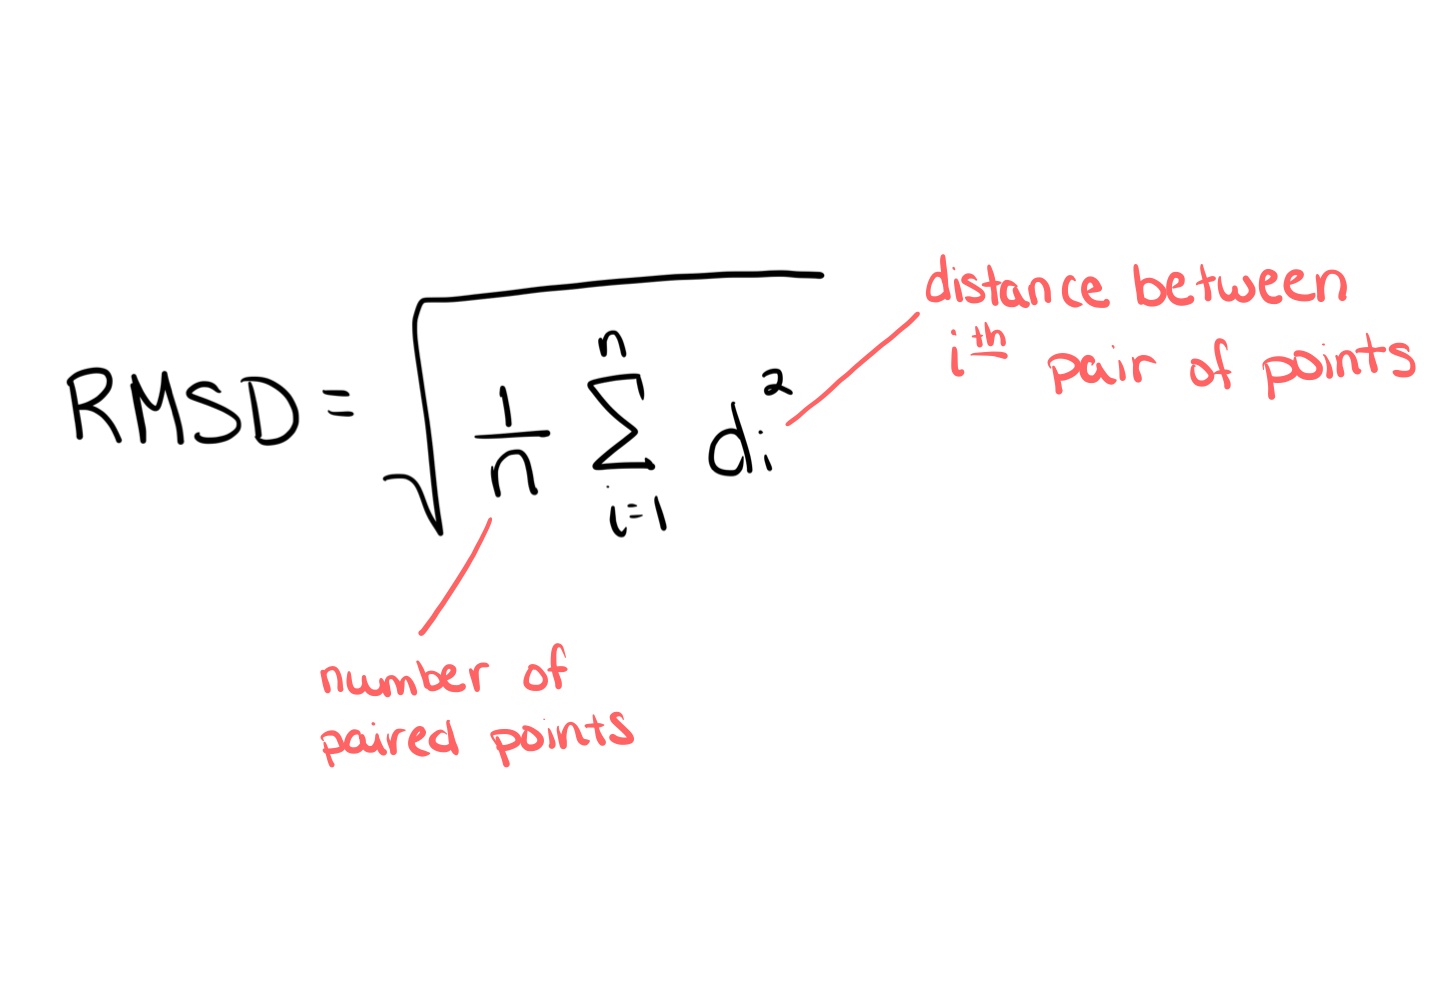 RMSD = √(1/n ∑ⁿᵢ₌₁ dᵢ²)
distance between
iᵗʰ pair of points
number of
paired points